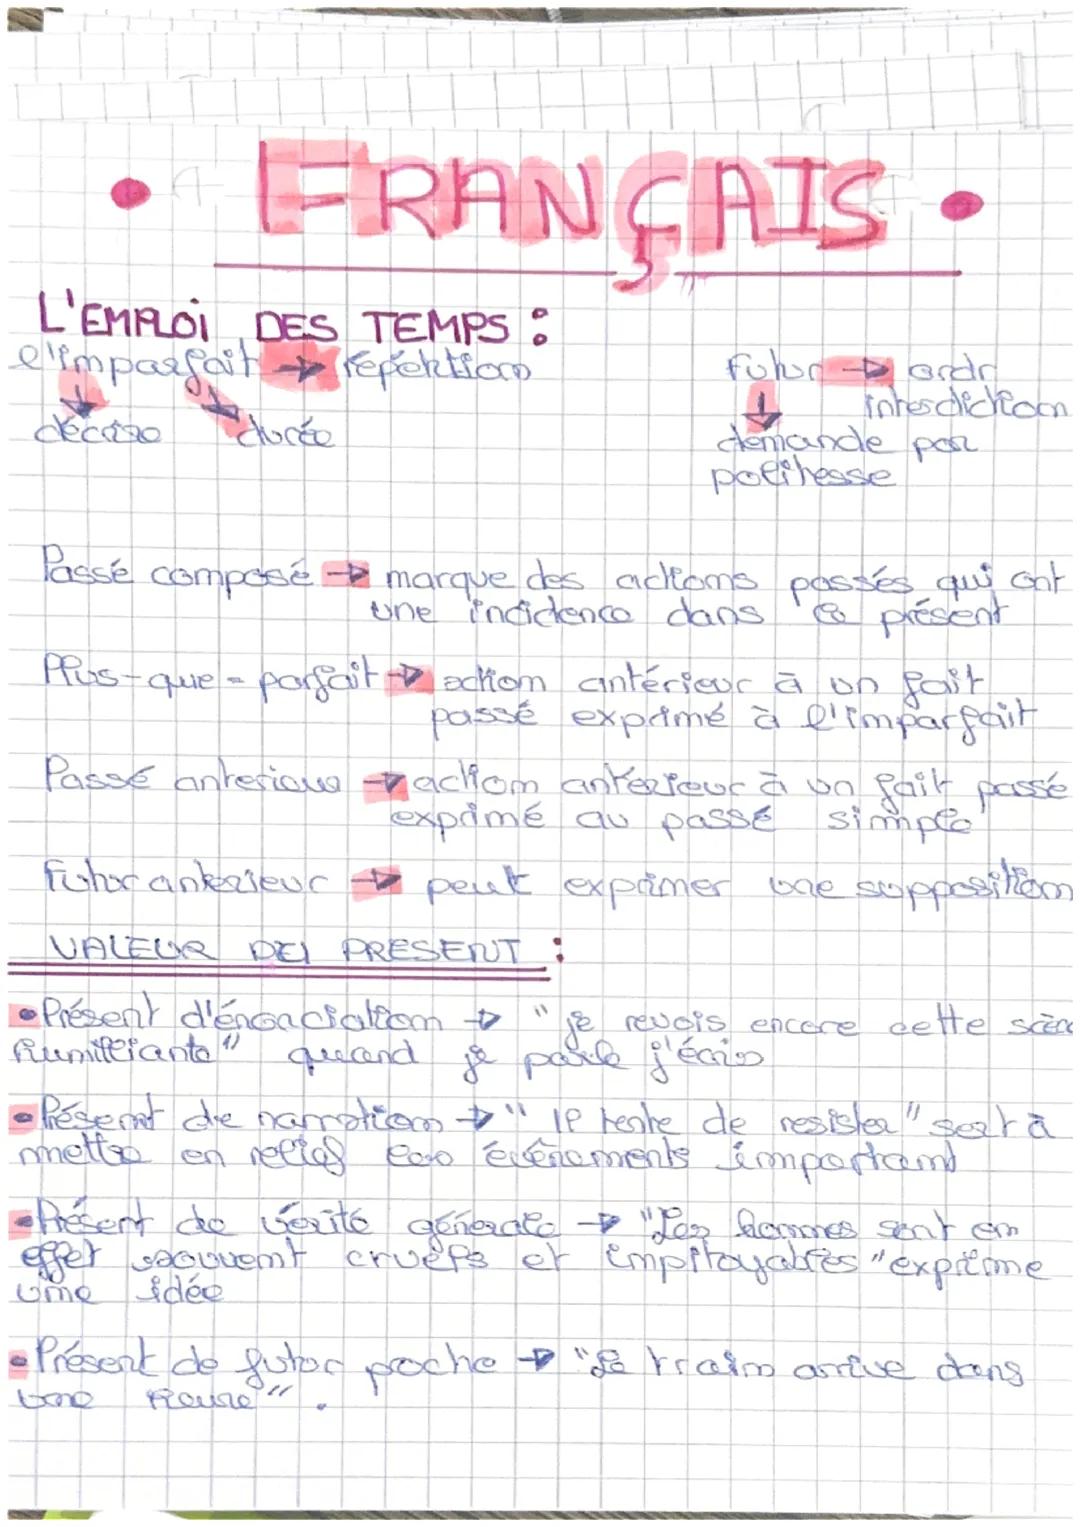 • FRANÇAIS •
L'EMPLOI DES TEMPS :
l'imparfait → répétition
décrire durée
Futur → ordr
interdiction
demande par
politesse
Passé composé → marque des actions passés qui ont
une incidence dans le présent
Plus-que-parfait → action antérieur à un fait
passé exprimé à l'imparfait
Passé anterieur → action antérieur à un fait passé
exprimé au passé simple
Futur anterieur → peut exprimer une supposition
VALEUR DU PRESENT :
• Présent d'énonciation → "je revois encore cette scèn
humiliante" quand je parle j'écris
• Présent de narration → " le tente de resister" sert à
mettre en relief les événements important
• Présent de vérité générale → "Les hommes sont en
effet souvent cruels et impitoyables" exprime
une idée
• Présent de futur proche → "Le train arrive dans
une heure".